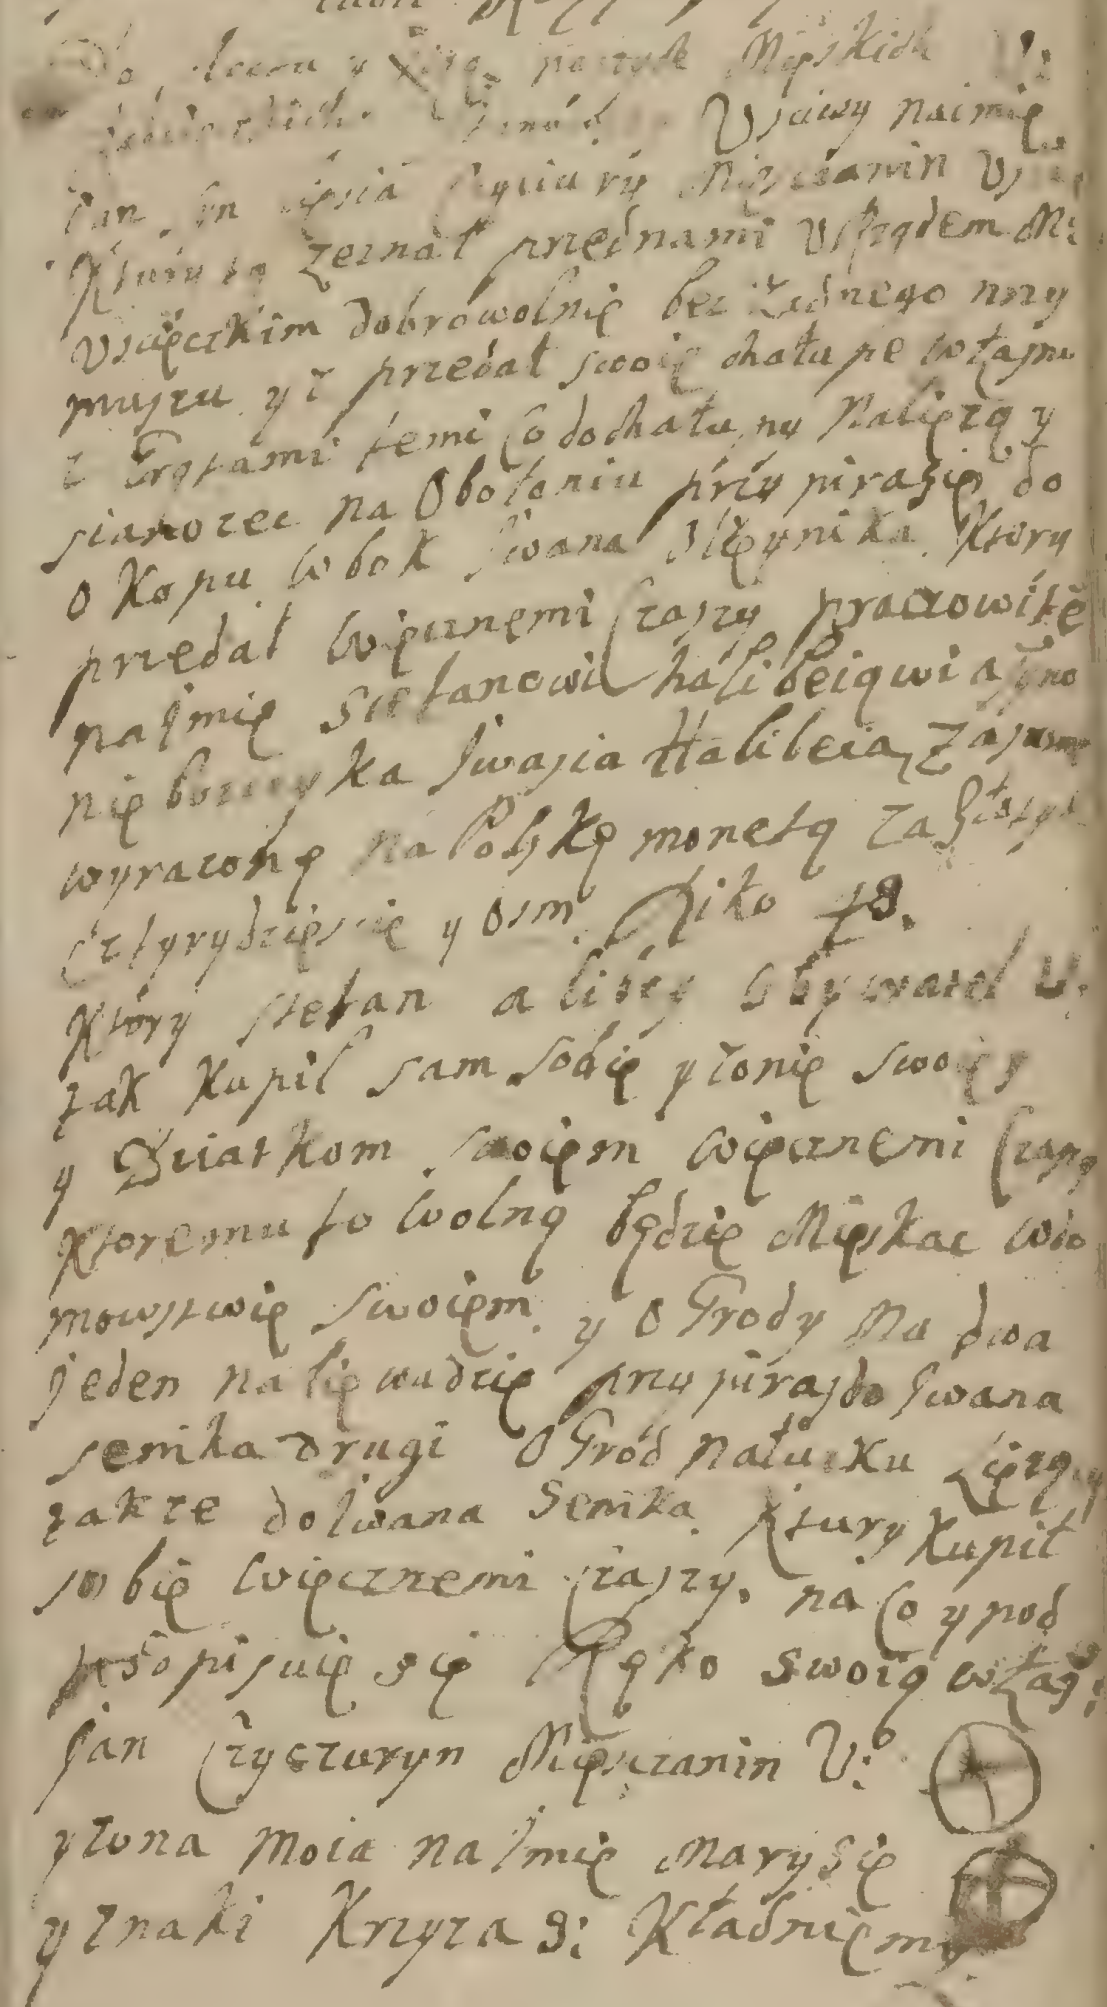 y Xięg Mieyskich V:
Uściwy naimię
Jan Mięsczanin
Ktury zeznał przed nami Urzędem Mi:
Uścięczkim dobrowolnię bez żadnego nrzy
muszu yż przedał swoię chałupe własnu
z Grątami temi Co do chałupy Nalięzą y
sianozec na Obołoniu przypiraiię do
okopu wbok Iwana Ktory
przedał więcznemi Czaszy pracowitę
naimię Stefanowi halibeiqwi a syno
nię boszczyka Iwasia Halibeia, Za summę
wyrazonę na Polskę monetą za złotych
Cztyrydzięscię y osm Dito 48.
Który stefan alibey obywatel V:
tak kupil sam sobię y żonię swoięy
y Dziatkom swoięm więcznemi Czaszy
Ktoremu to wolną będzię Mięskac wdo
mowstwię swoięm y oGrody Ma dwa
jeden na lięwadzię przypiraj do Iwana
semka drugi oGród nału ku Lięzący
takze do Iwana Semka Ktury kupił
sobię więcznemi czaszy. na Co y pod
pisuię się Ręko swoią właś:
Jan Czyczuryn Mięsczanin V:
y żona Moia na Imię Marysię
y znaki Krzyza S: Kładnięmy